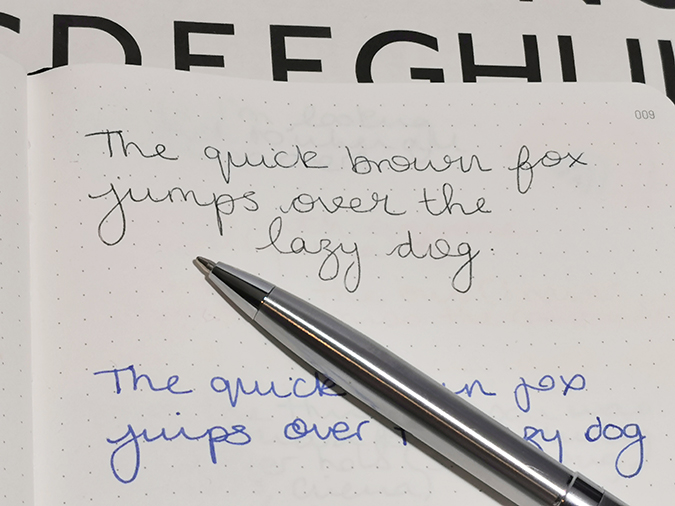 DEFGHIJ
009
The quick brown fox
jumps over the
lazy dog.
The quick fox
juips over dog